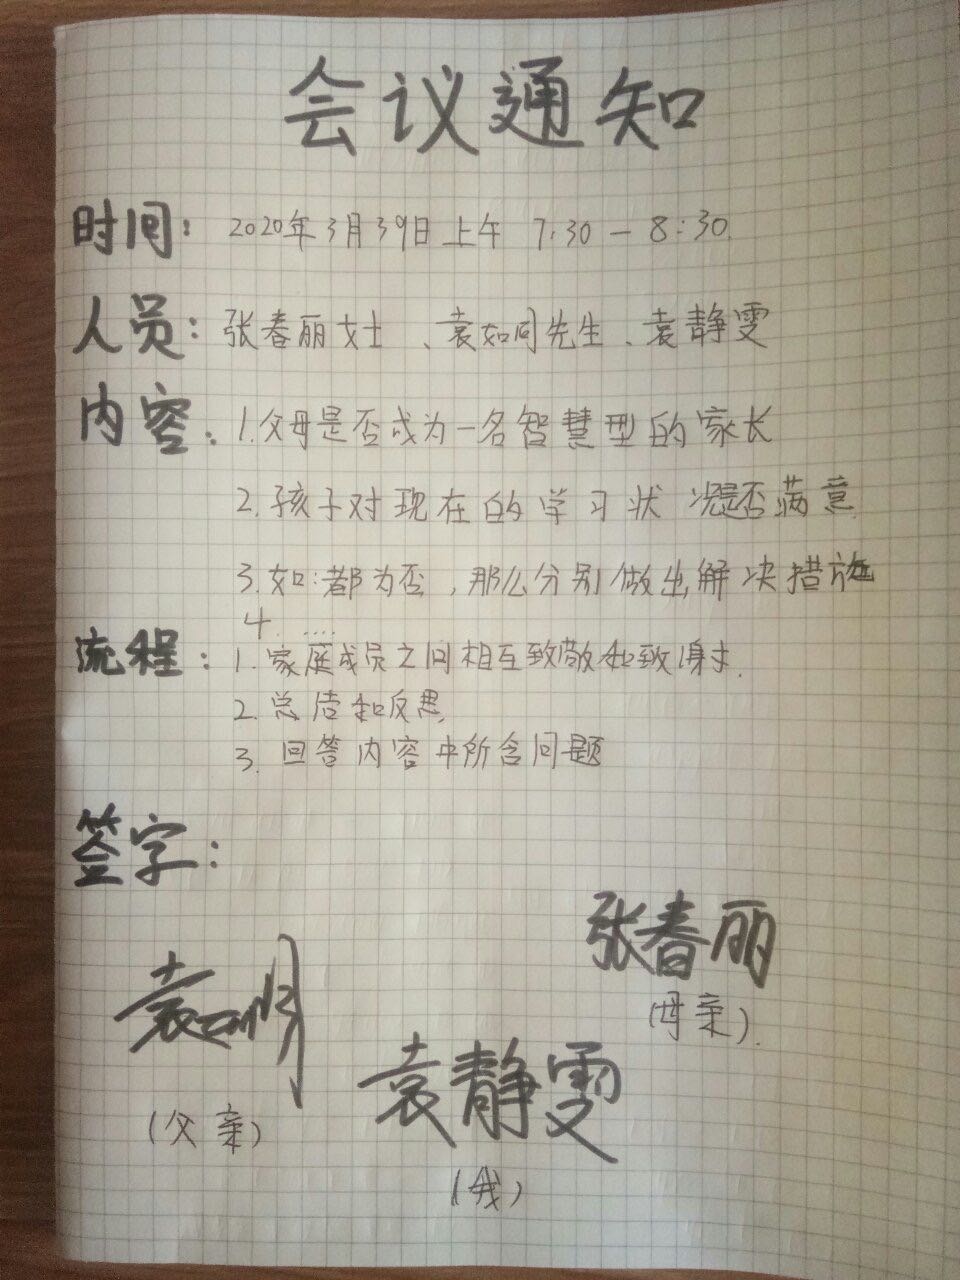 会议通知
时间: 2020年3月39日上午 7:30 — 8:30.
人员: 张春丽女士、袁如同先生、袁静雯
内容: 1.父母是否成为一名智慧型的家长
2.孩子对现在的学习状况是否满意
3.如:都为否,那么分别做出解决措施
4. ....
流程: 1.家庭成员之间相互致敬和致谢.
2.总结和反思.
3.回答内容中所含问题
签字:
张春丽
(母亲).
袁
袁静雯
(父亲)
(我)